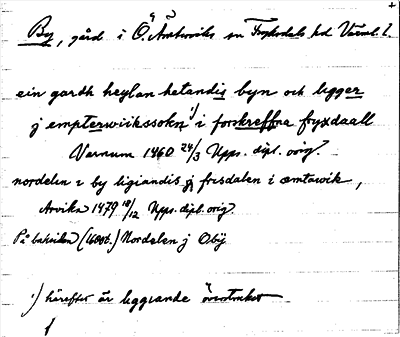 By, gård i Ö. Ämterviks sn Fryksdals hd Värml. l.
ein gardh heylan hetandis byn och ligger
j empterwiikssokn ¹) i forskreffna fryxdaall
Varnum 1460 24/3 Upps. dipl. orig.
nordelen i by ligiandis j frisdalen i æmtawik,
Arvika 1479 18/12 Upps. dipl. orig.
På baksidan (1600t.) Nordelen j Obÿ
¹) härefter är liggiande överstruket